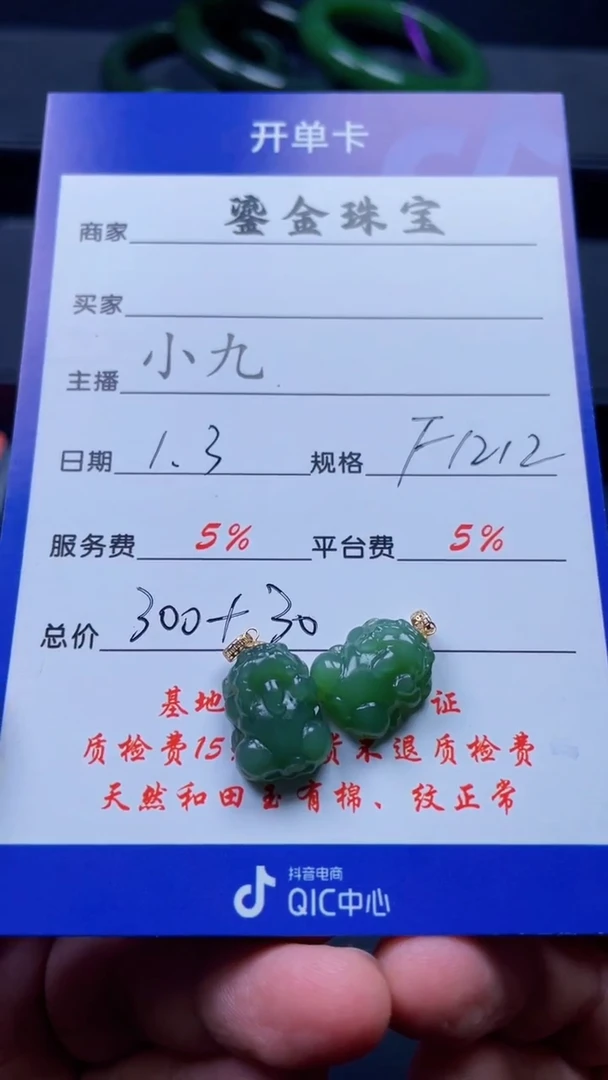 开单卡
商家 鎏金珠宝
买家
主播 小九
日期 1.3 规格 F1212
服务费 5% 平台费 5%
总价 300+30
基地 证
质检费15 货未退质检费
天然和田玉有棉、纹正常
抖音电商
QIC中心